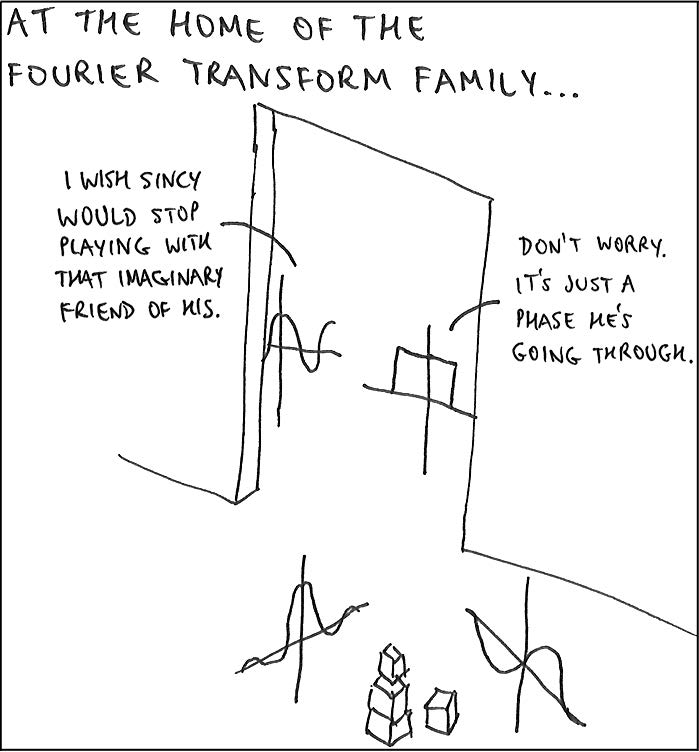 AT THE HOME OF THE
FOURIER TRANSFORM FAMILY...
I WISH SINCY
WOULD STOP
PLAYING WITH
THAT IMAGINARY
FRIEND OF HIS.
DON'T WORRY.
IT'S JUST A
PHASE HE'S
GOING THROUGH.